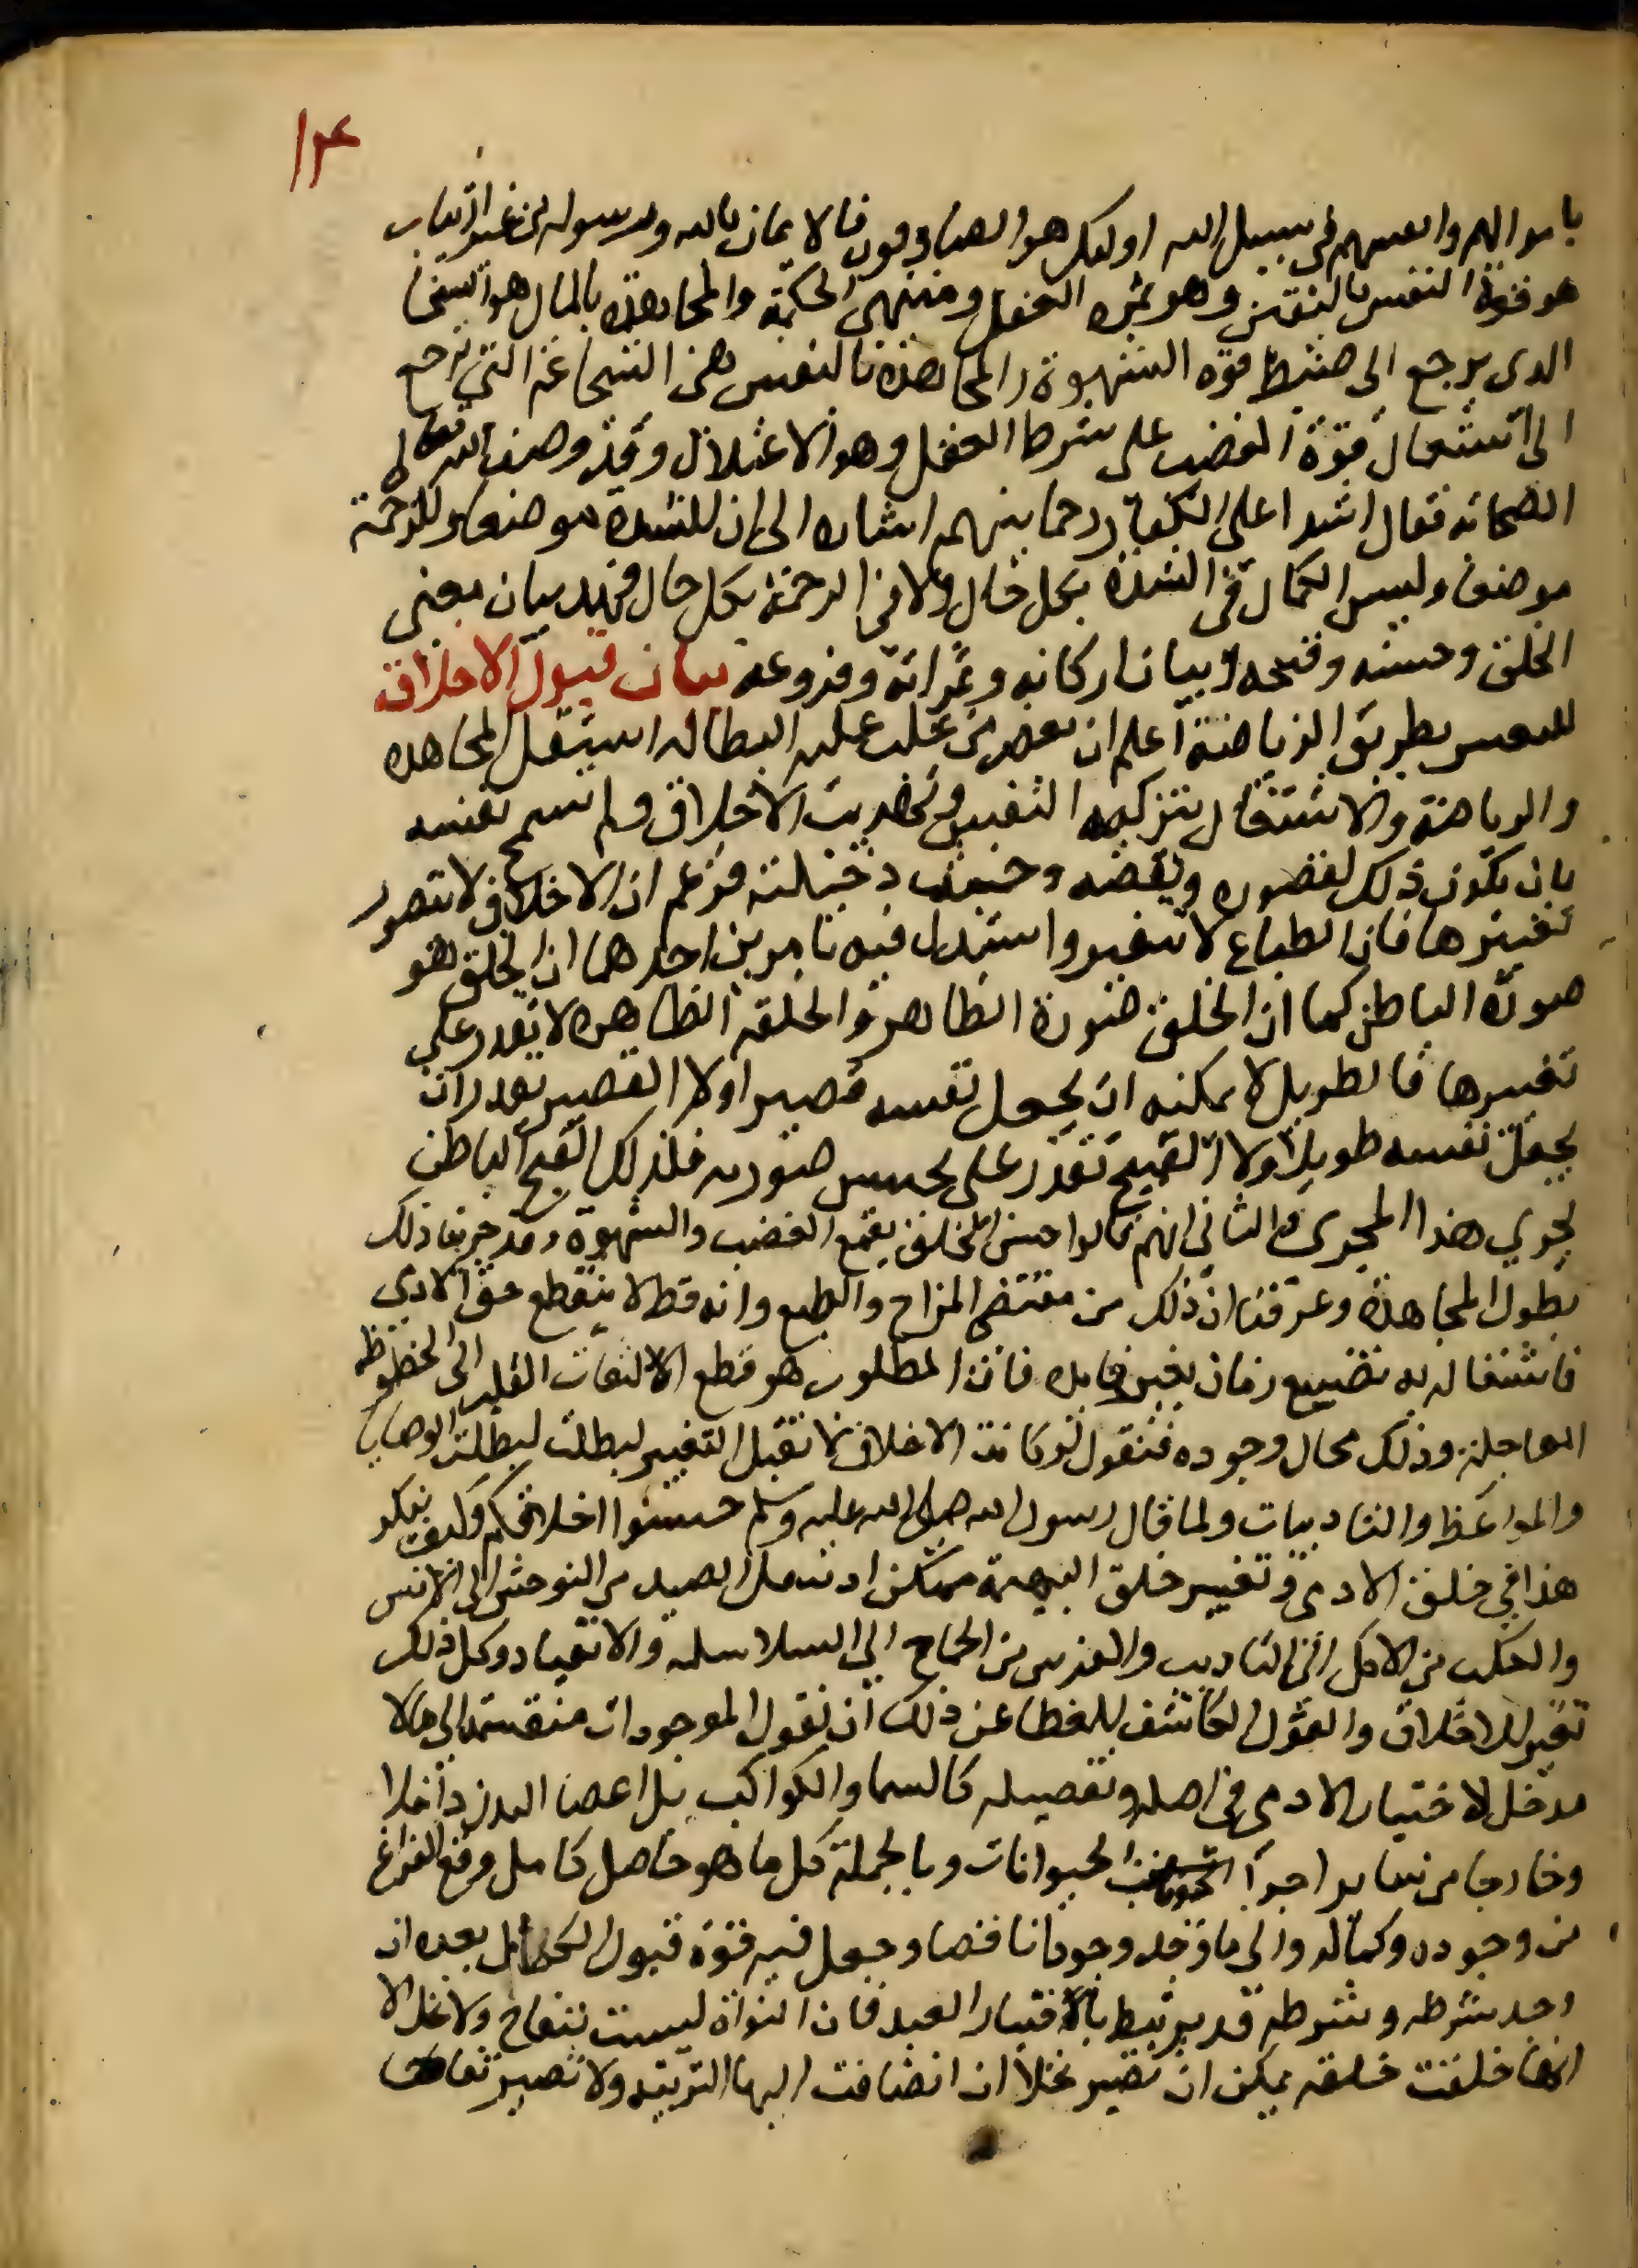 ١٣٤
باموالهم وانفسهم في سبيل الله اولئك هم الصادقون فالايمان بالله ورسوله من غير ارتياب
هو قوة النفس باليقين وهو ثمرة العقل ومنتهى الحكمة والمجاهدة بالمال هو السخا
الدى يرجع الى ضبط قوه الشهوة والمجاهدة بالنفس هى الشجاعة التي ترجع
الى استعمال قوة الغضب على شرط العقل وهو الاعتدال وقد وصف الله تعالى
الصحابه فقال اشدا على الكفار رحما بينهم اشاره الى ان للشدة موضعا وللرحمة
موضعا وليس الكمال في الشدة بكل حال ولا في الرحمة بكل حال فهذا بيان معنى
الخلق وحسنه وقبحه وبيان اركانه وثمراته وفروعه بيان قبول الاخلاق
للتغيير بطريق الرياضة اعلم ان بعض من غلب عليه البطاله استثقل المجاهده
والرياضة والاشتغال بتزكيه النفس وتهذيب الاخلاق ولم تسمح نفسه
بان يكون ذلك لقصوره ونقصه وخبث دخيلته فزعم ان الاخلاق لا تتصور
تغييرها فان الطباع لا تتغير واستدل فيه بامرين احدهما ان الخلق هو
صورة الباطن كما ان الخلق صورة الظاهر والخلقه الظاهره لا يقدر على
تغييرها فالطويل لا يمكنه ان يجعل نفسه قصيرا ولا القصير يقدر ان
يجعل نفسه طويلا ولا القبيح يقدر على تحسين صورته فكذلك القبح الباطن
يجري هذا المجرى والثاني انهم قالوا حسن الخلق يقمع الغضب والشهوة وقد جربنا ذلك
بطول المجاهدة وعرفنا ان ذلك من مقتضى المزاج والطبع وانه قط لا ينقطع عن الادمى
فاشتغاله به تضييع زمان بغير فايده فان المطلوب هو قطع الالتفات القلب الى الحظوظ
العاجلة وذلك محال وجوده فنقول لو كانت الاخلاق لا تقبل التغيير لبطلت لبطلت الوصايا
والمواعظ والتاديبات ولما قال رسول الله صلى الله عليه وسلم حسنوا اخلاقكم وكيف ينكر
هذا في خلق الادمى وتغيير خلق البهيمة ممكن اذ ينقل الصيد من التوحش الى الانس
والكلب من الاكل الى التاديب والفرس من الجماح الى السلاسله والانقياد وكل ذلك
تغير للاخلاق والقول الكاشف للغطا عن ذلك ان نقول الموجودات منقسمة الى ما لا
مدخل لاختيار الادمى في اصله وتفصيله كالسما والكواكب بل اعضا البدن داخلا
وخارجا من ساير اجزا الحيوانات وبالجملة كل ما هو حاصل كامل وقع الفراغ
من وجوده وكماله والى ما وجد وجودا ناقصا وجعل فيه قوة قبول الكمال بعده ان
وجد شرطه وشرطه قد يرتبط باختيار العبد فان النواة ليست بتفاح ولا نخل الا
انها خلقت خلقه يمكن ان تصير نخلا ان انضافت اليها التربيه ولا تصير تفاحا